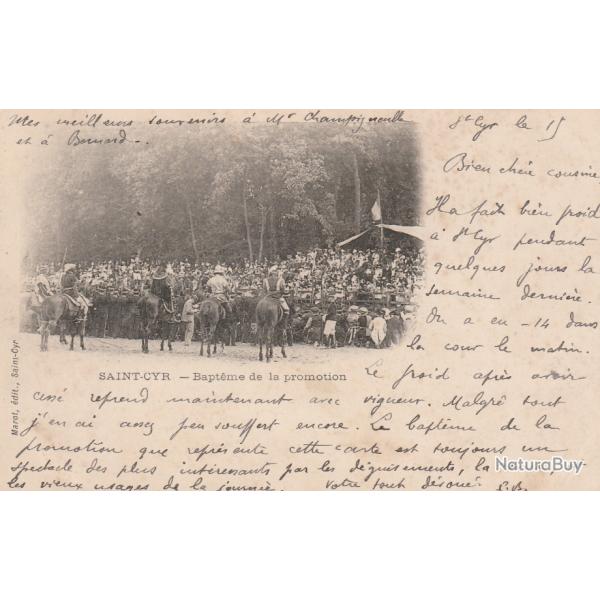 Mes meilleurs souvenirs à Mr Champigneulle
et à Bernard -.
St Cyr le 15
Bien chère cousine,
Il a fait bien froid
à St Cyr pendant
quelques jours la
semaine dernière.
On a eu -14 dans
la cour le matin.
SAINT-CYR — Baptême de la promotion
Marot, édit., Saint-Cyr.
Le froid après avoir
cessé reprend maintenant avec vigueur. Malgré tout
j'en ai assez peu souffert encore. Le baptême de la
promotion que représente cette carte est toujours un
spectacle des plus intéressants par les déguisements, la
les vieux usages de la journée. Votre tout dévoué
NaturaBuy